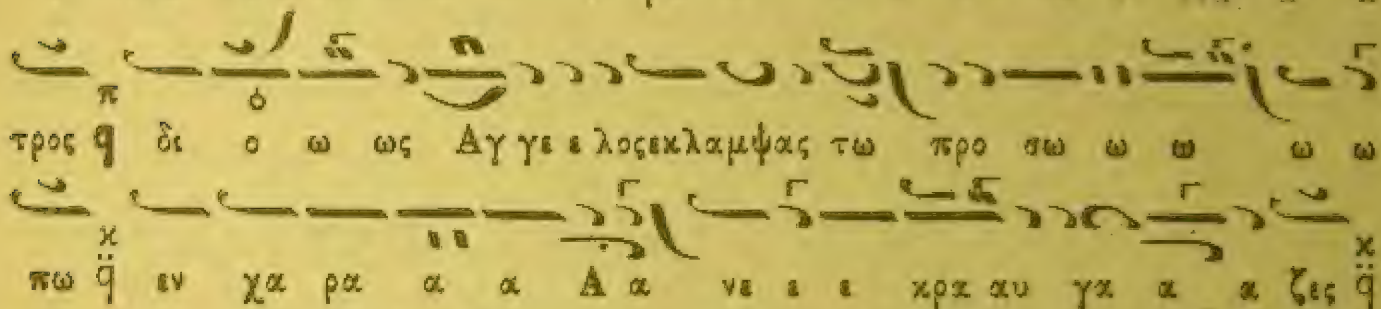 π
τρος q δι ο ω ως Αγ γε ε λος εκλαμψας τω προ σω ω ω ω ω
κ κ
πω q εν χα ρα α α Α α νε ε ε κρα αυ γα α α ζες q